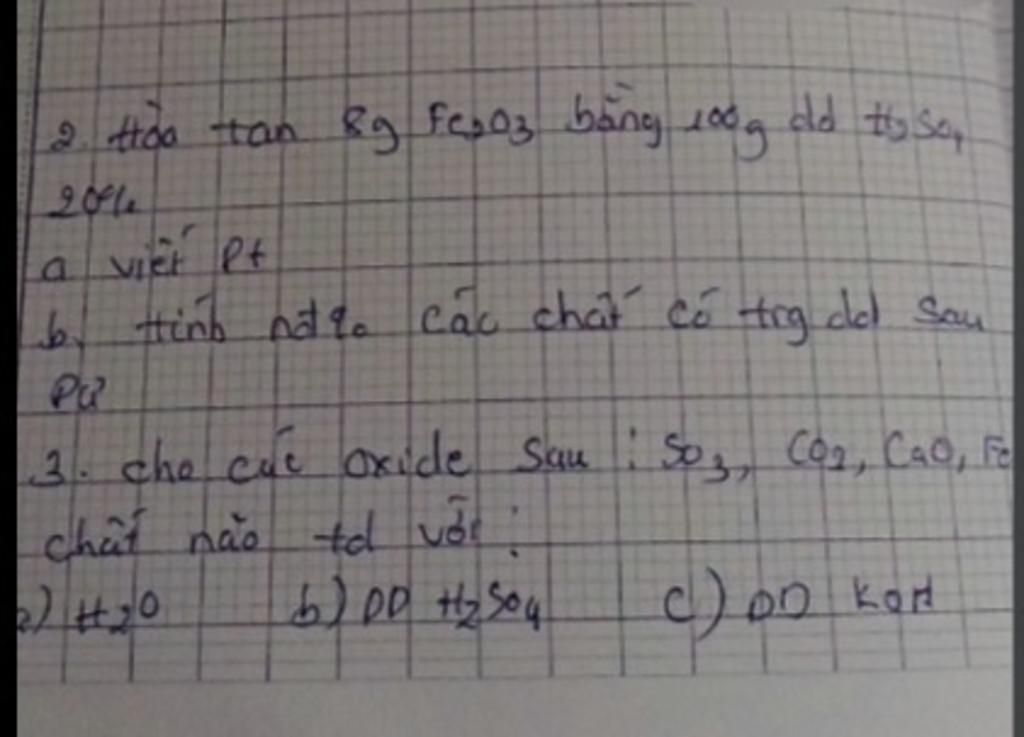 2. Hòa tan 8g Fe2O3 bằng 100g dd H2SO4
20%
a viết Pt
b. tính nđ% các chất có trg dd sau
PƯ
3. cho các oxide sau: SO3, CO2, CaO, Fe
chất nào td với:
a) H2O b) DD H2SO4 c) DD KOH